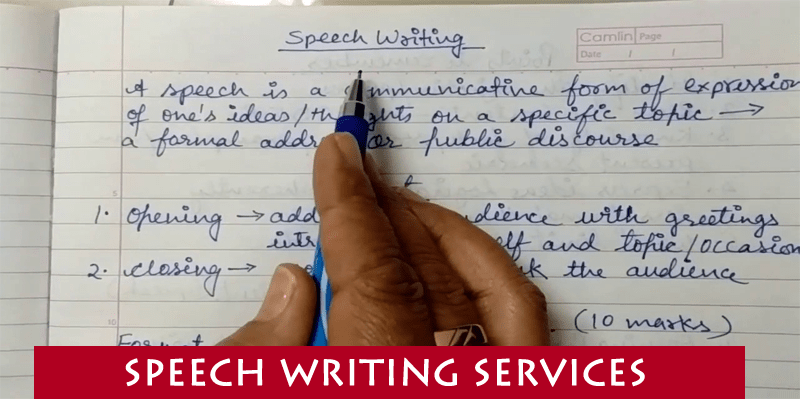 Speech Writing
Camlin Page
Date / /
A speech is a communicative form of expression
of one's ideas/thoughts on a specific topic →
a formal address or public discourse
1. Opening → add audience with greetings
intr self and topic/occasion
2. closing → the audience
(10 marks)
Format
SPEECH WRITING SERVICES